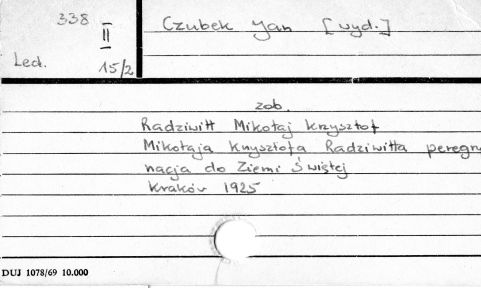 338
II
Led.
15/2
Czubek Jan [wyd.]
zob.
Radziwiłł Mikołaj Krzysztof
Mikołaja Krzysztofa Radziwiłła peregry
nacja do Ziemi Świętej
Kraków 1925
DUJ 1078/69 10.000